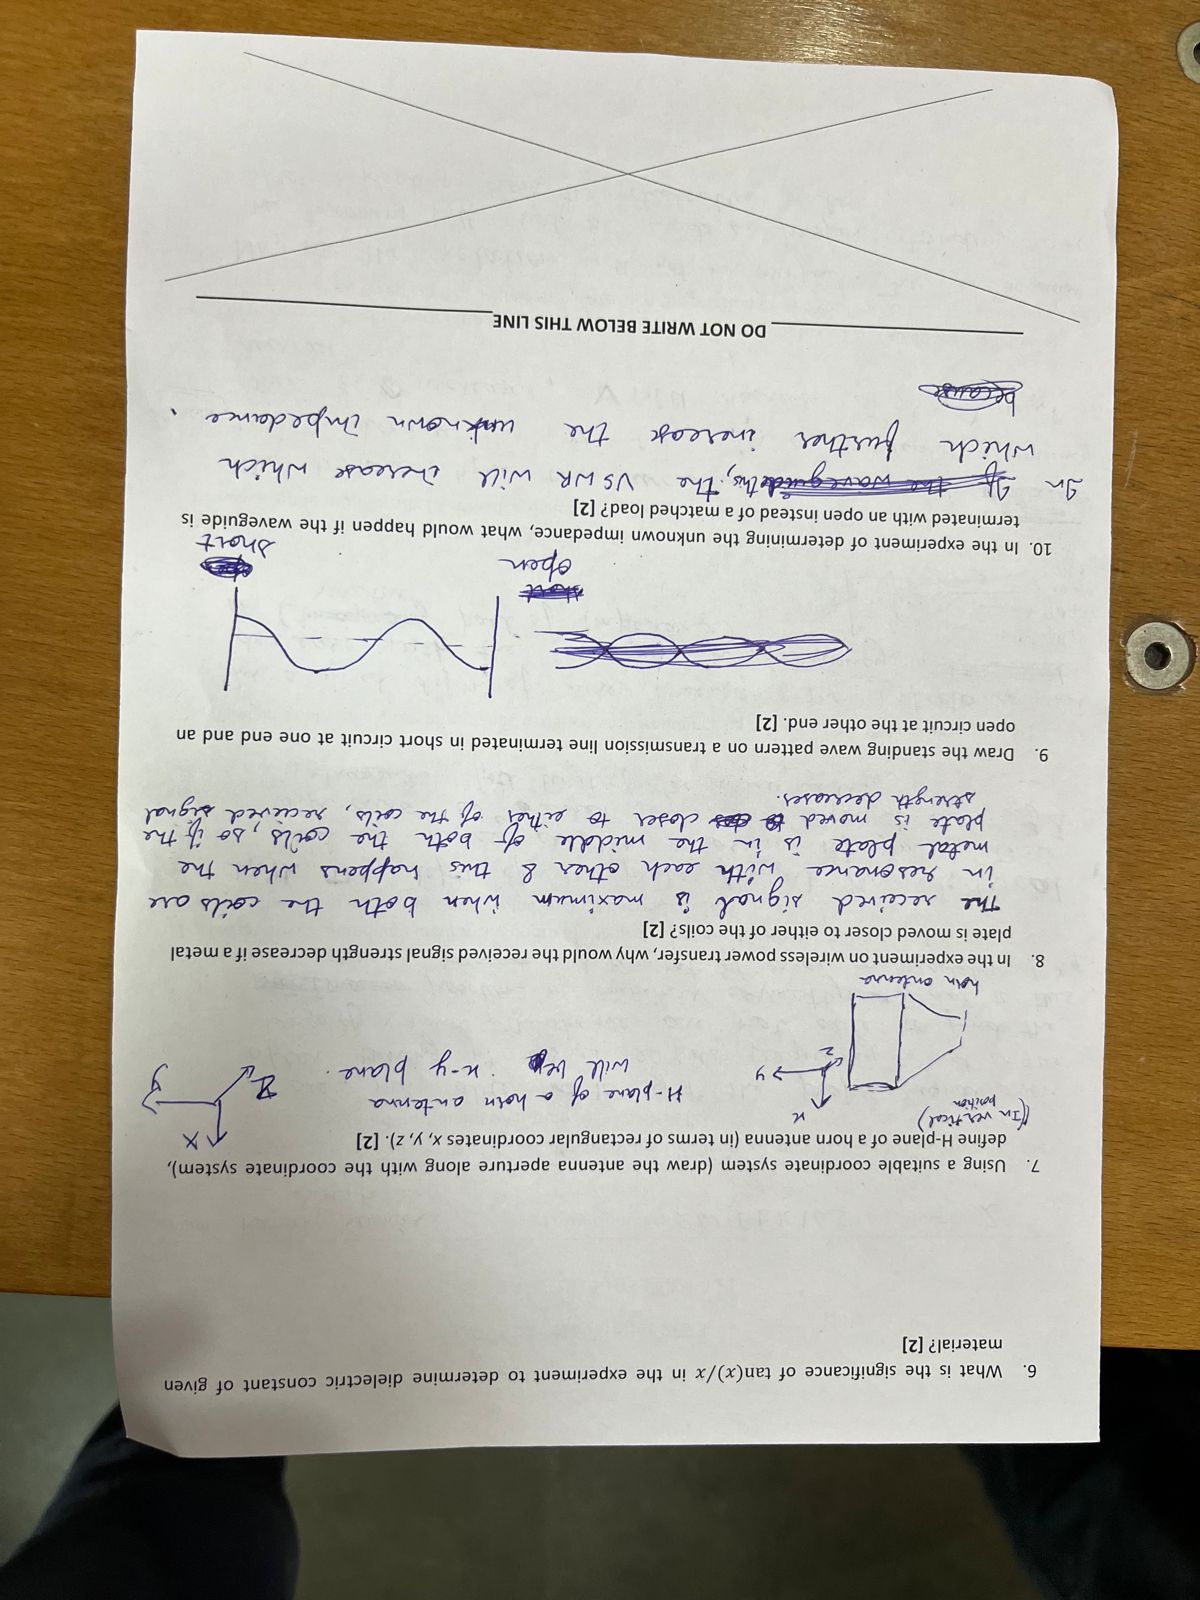 6. What is the significance of tan(x)/x in the experiment to determine dielectric constant of given
material? [2]
7. Using a suitable coordinate system (draw the antenna aperture along with the coordinate system),
define H-plane of a horn antenna (in terms of rectangular coordinates x, y, z). [2]
(In vertical
position)
x
y
z
H-plane of a horn antenna
will be x-y plane.
x
y
z
horn antenna
8. In the experiment on wireless power transfer, why would the received signal strength decrease if a metal
plate is moved closer to either of the coils? [2]
The received signal is maximum when both the coils are
in resonance with each other & this happens when the
metal plate is in the middle of both the coils, so if the
plate is moved closer to either of the coils, recieved signal
strength decreases.
9. Draw the standing wave pattern on a transmission line terminated in short circuit at one end and an
open circuit at the other end. [2]
open
short
10. In the experiment of determining the unknown impedance, what would happen if the waveguide is
terminated with an open instead of a matched load? [2]
In this, the VSWR will increase which
which further increase the unknown impedance.
because
DO NOT WRITE BELOW THIS LINE